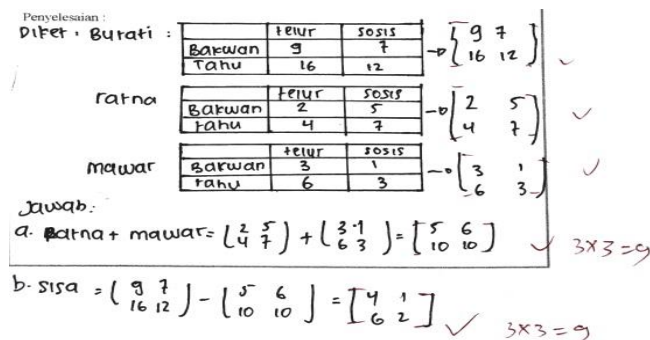 Penyelesaian :
Diket : Burati :
telur sosis
Bakwan 9 7
Tahu 16 12
→ [9 7
16 12]
ratna
telur sosis
Bakwan 2 5
tahu 4 7
→ [2 5
4 7]
mawar
telur sosis
Bakwan 3 1
tahu 6 3
→ [3 1
6 3]
Jawab:
a. Ratna + mawar = (2 5
4 7) + (3 1
6 3) = [5 6
10 10]
3x3=9
b. sisa = (9 7
16 12) - [5 6
10 10] = [4 1
6 2]
3x3=9